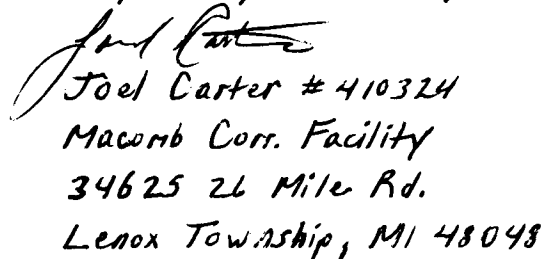 Joel Carter
Joel Carter # 410324
Macomb Corr. Facility
34625 26 Mile Rd.
Lenox Township, MI 48048